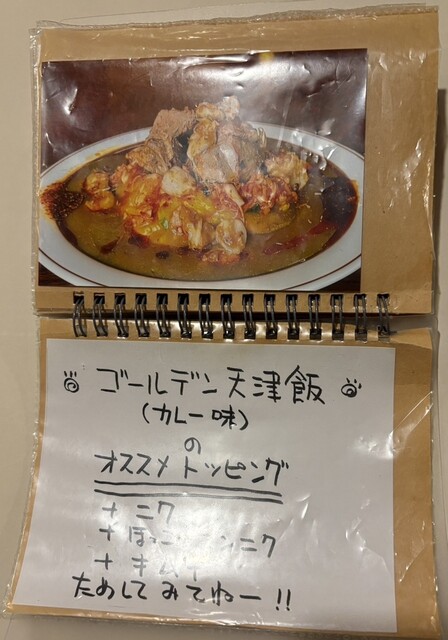 ゴールデン天津飯
(カレー味)
の
オススメトッピング
+ニク
ためしてみてねー!!